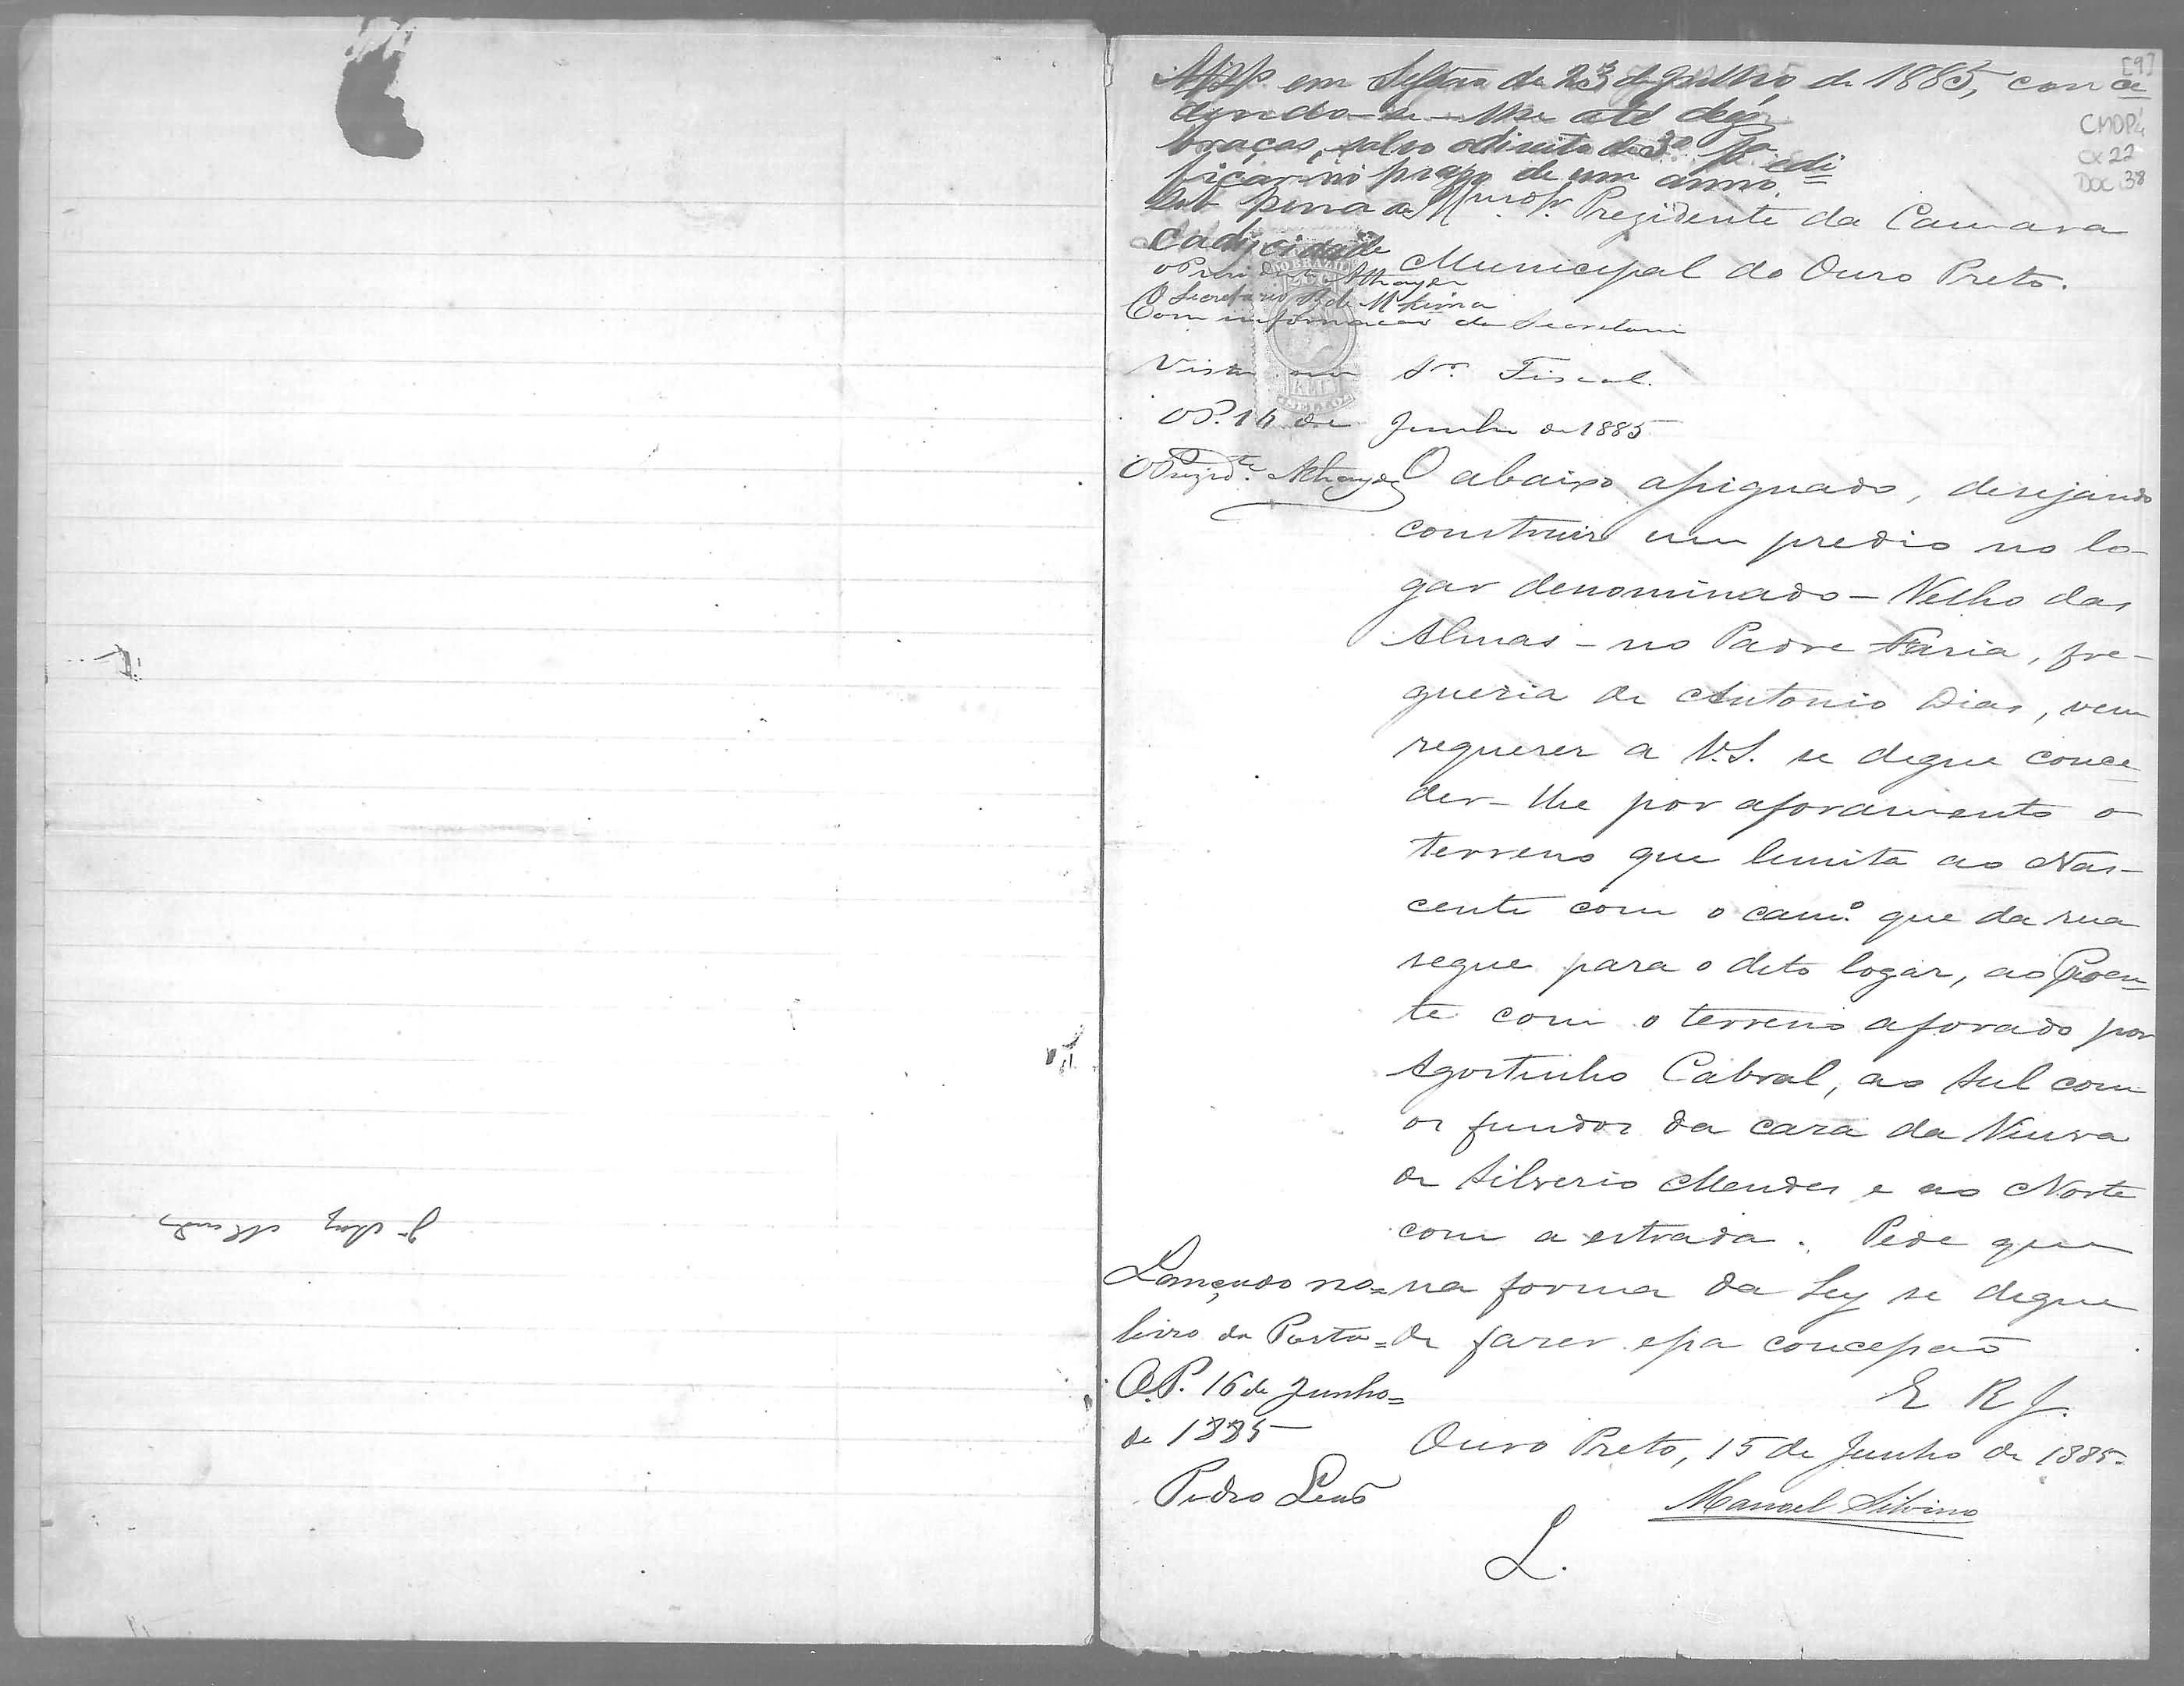 [9]
CMOP
CX 22
DOC 38
em Sessão de 23 de Julho de 1885, conce
dendo-se-lhe até dez
braças, salvo o direito de 3º pª edi
ficar no prazo de um anno
sob pena de
caducidade
O Secretario
Presidente da Camara
Municipal do Ouro Preto.
Com informação da Secretaria
Vista ao Sr. Fiscal.
OP. 16 de Junho de 1885
O Prezidte.
O abaixo assignado, desejando
construir um predio no lo-
gar denominado - Velho das
Almas - no Padre Faria, fre-
guezia de Antonio Dias, vem
requerer a V.S. se digne conce
der-lhe por aforamento o
terreno que limita ao Nas-
cente com o camº que da rua
segue para o dito logar, ao Poen
te com o terreno aforado por
Agostinho Cabral, ao Sul com
os fundos da casa da Viuva
de Silverio Mendes e ao Norte
com a estrada. Pede que
na forma da Ley se digne
de fazer essa concessão
E R J.
Ouro Preto, 15 de Junho de 1885.
Manoel Silvino
Lançado no=
livro da Porta=
O.P. 16 de Junho=
de 1885
Pedro Leão
L.